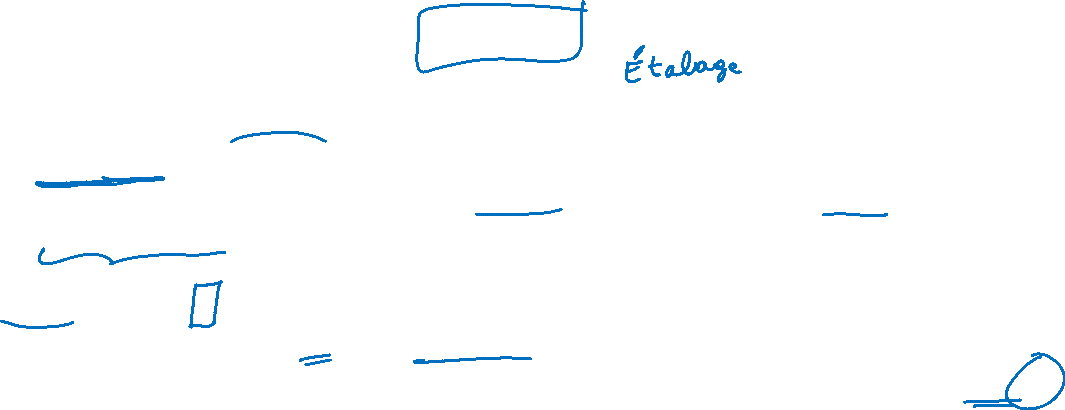 Étalage